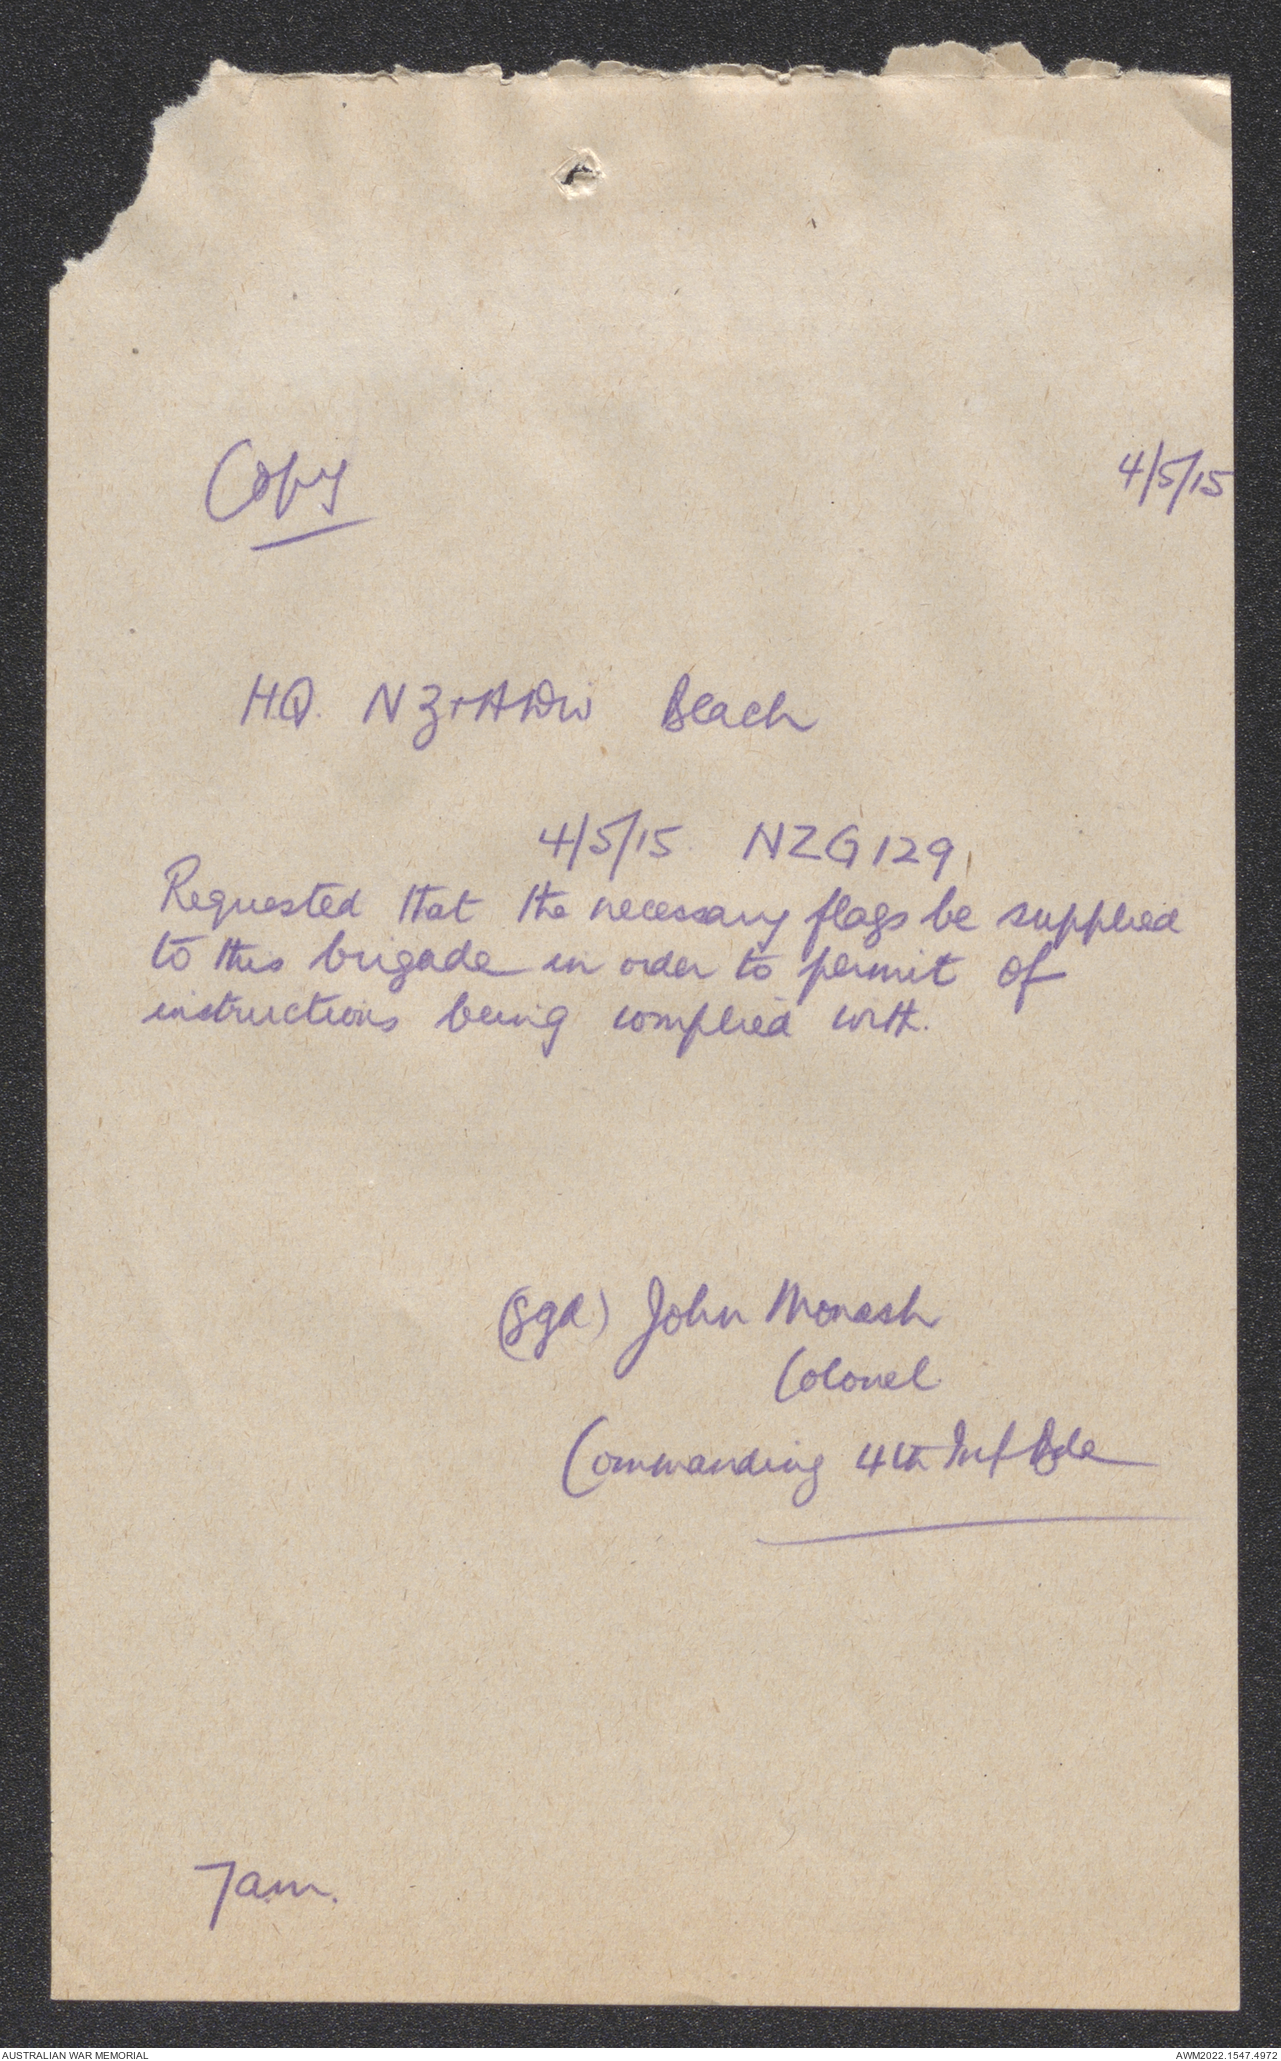 Copy
4/5/15
HQ. NZ+A Div Beach
4/5/15. NZG129
Requested that the necessary flags be supplied
to this brigade in order to permit of
instructions being complied with.
(Sgd) John Monash
Colonel
Commanding 4th Inf Bde
7am.
AUSTRALIAN WAR MEMORIAL
AWM2022.1547.4972